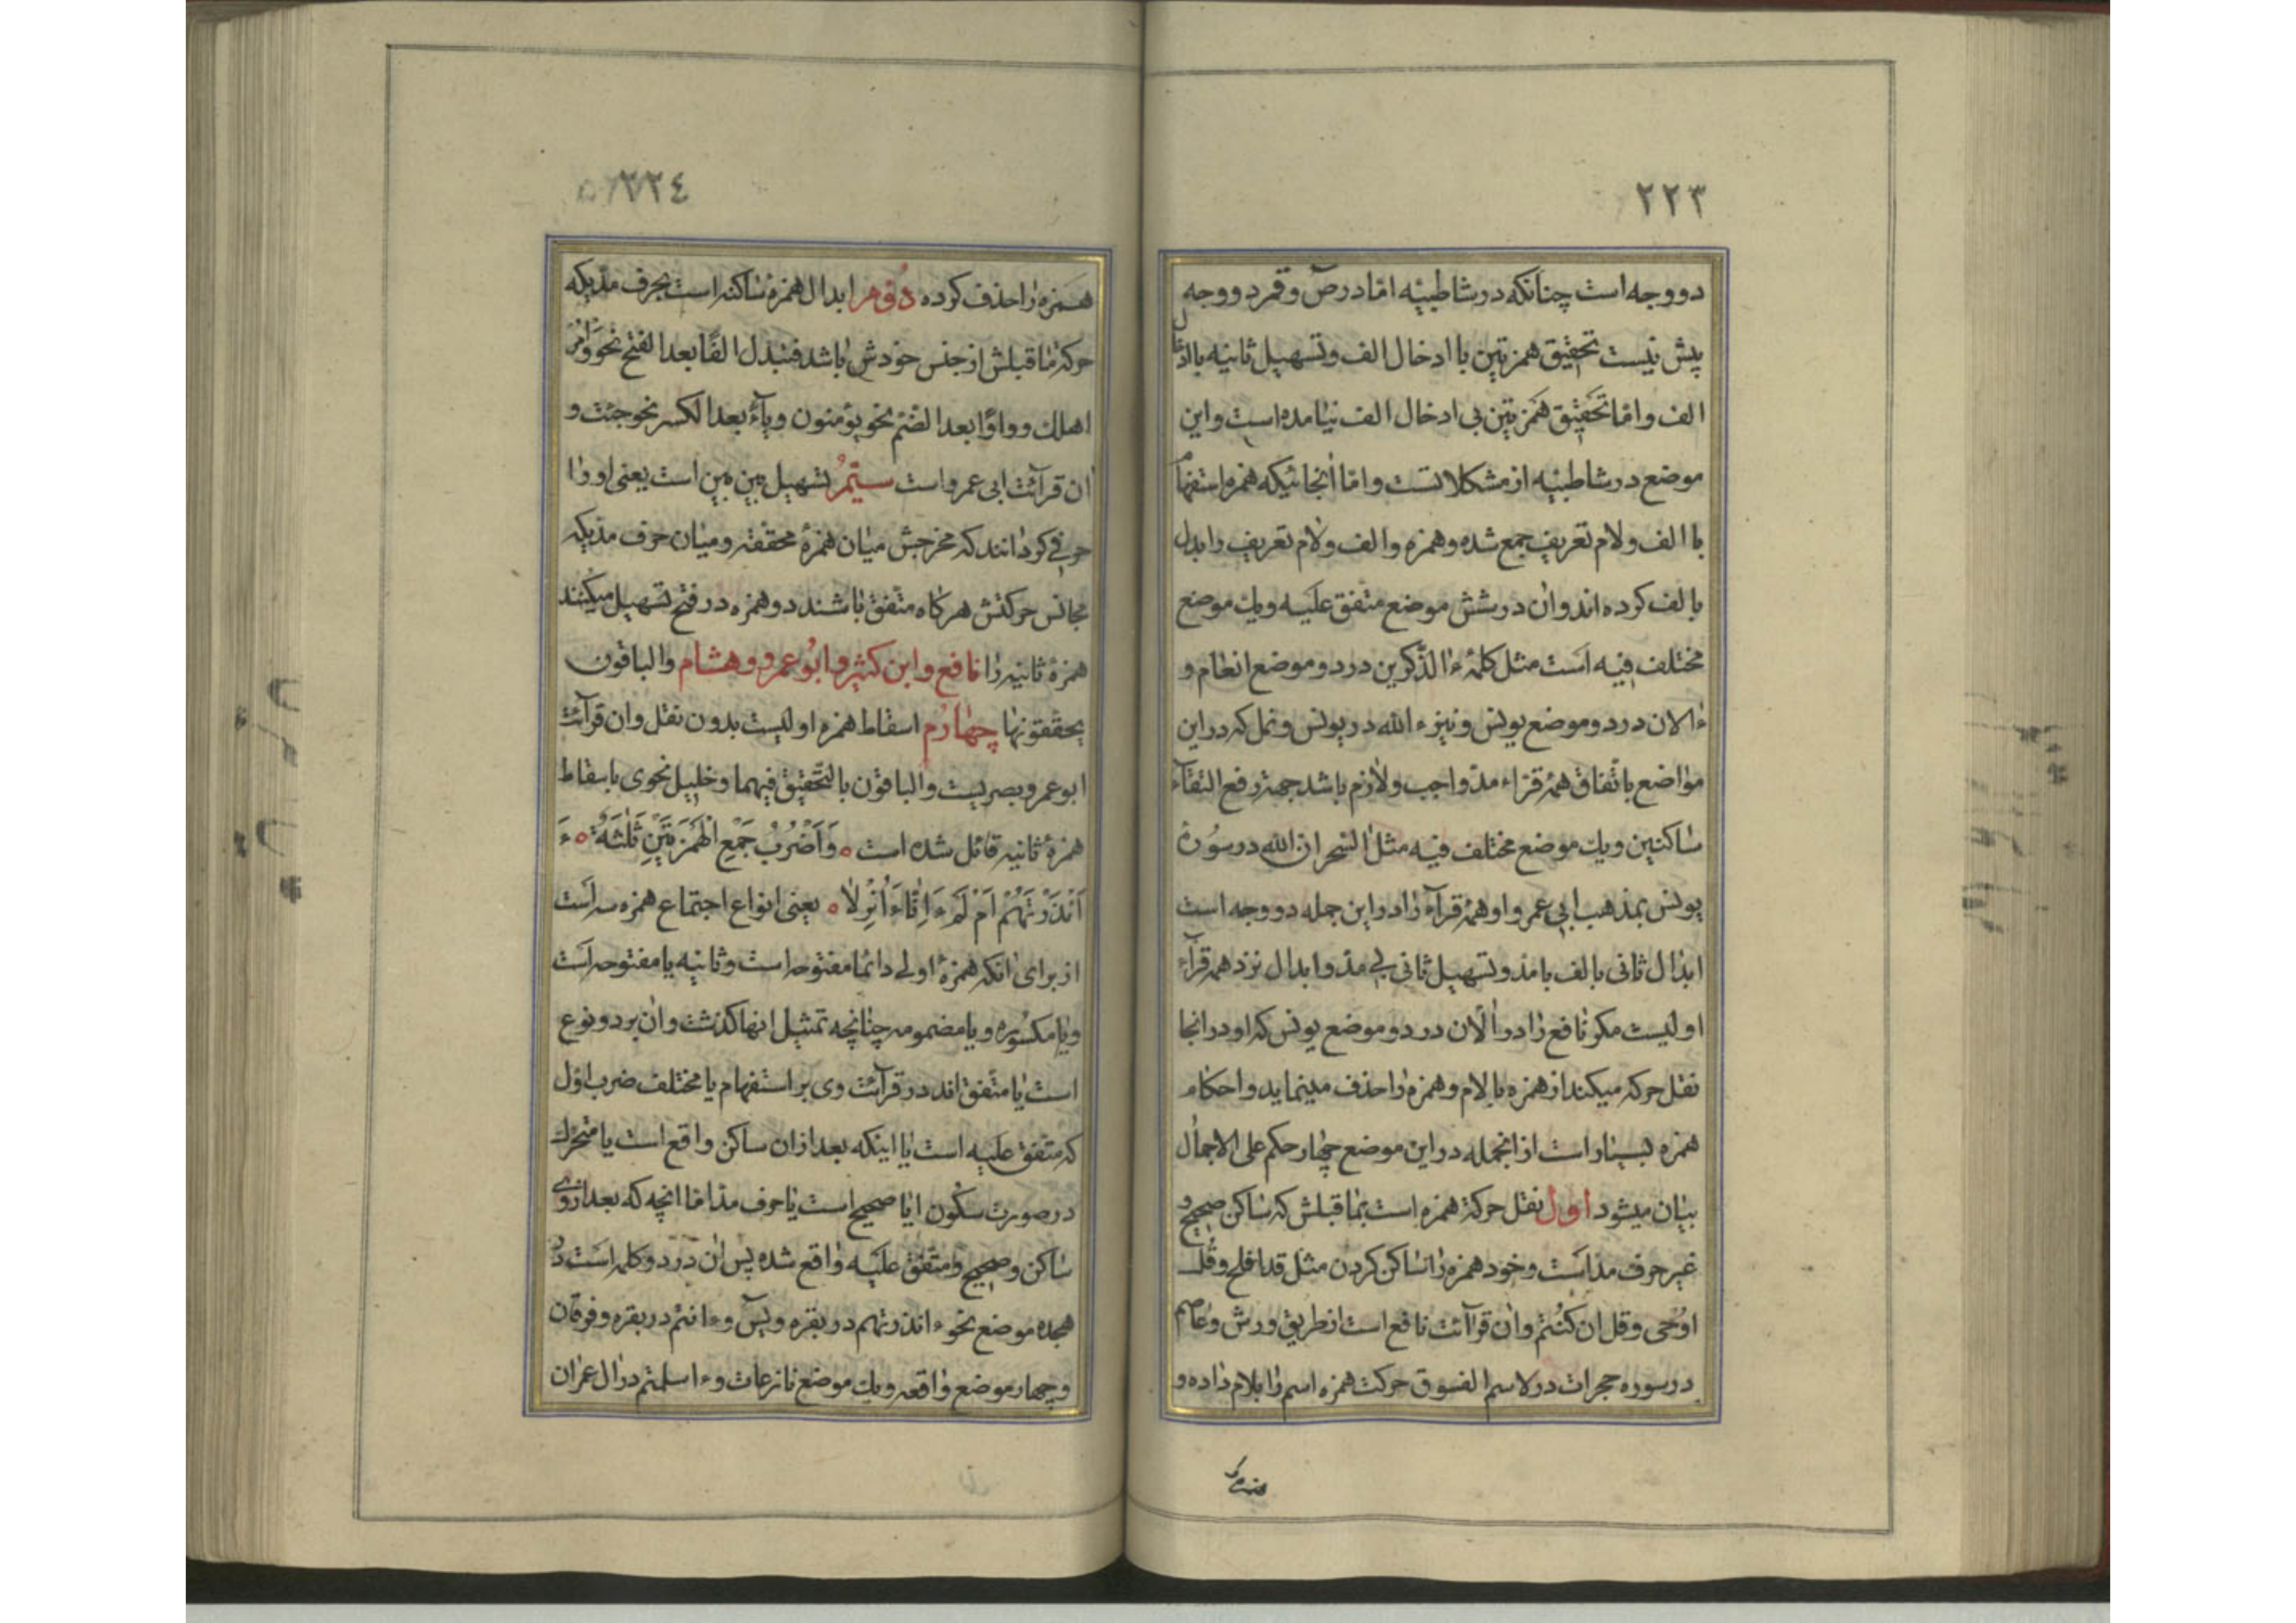 ٢٢٣
دو وجه است چنانکه در شاطبیّه امّا در صٓ و قمر دو وجه
پیش نیست تحقیق همزتین با ادخال الف و تسهیل ثانیه با ادخال
الف و امّا تحقیق همزتین بی ادخال الف نیامده است و این
موضع در شاطبیّه از مشکلاتست و امّا آنجائیکه همزه استفهام
با الف و لام تعریف جمع شده و همزه و الف و لام تعریف را بدل
بالف کرده اند و آن در شش موضع متّفق علیه و یك موضع
مختلف فیه است مثل کلمهٔ ءالذّکرین در دو موضع انعام و
ءالان در دو موضع یونس و نیز ءالله در یونس و نمل که در این
مواضع باتّفاق همهٔ قرّاء مدّ واجب و لازم باشد جهة رفع التقآء
ساکنین و یك موضع مختلف فیه مثل السحر ان الله در سورهٔ
یونس بمذهب ابی عمرو و همهٔ قرآء را در این جمله دو وجه است
ابدال ثانی بالف با مدّ و تسهیل ثانی بی مدّ و ابدال نزد همه قرآء
اولیست مکر نافع را در الآن در دو موضع یونس که او در آنجا
نقل حرکه میکند از همزه بالام و همزه را حذف مینماید و احکام
همزه بسیار است از آنجمله در این موضع چهار حکم علی الاجمال
بیان میشود اوّل نقل حرکة همزه است بما قبلش که ساکن صحیح و
غیر حرف مدّ است و خود همزه را ساکن کردن مثل قد افلح و قل
اوحی و قل ان کنتم و آن قرآئت نافع است از طریق ورش و عاصم
در سوره حجرات در لاسم الفسوق حرکت همزه اسم را بلام داده و
٢٢٤
همزه را حذف کرده دوّم ابدال همزهٔ ساکنه است بحرف مدّیکه
حرکة ما قبلش از جنس خودش باشد فتبدل الفًا بعد الفتح نحو وأمر
اهلك و واوًا بعد الضّم نحو یؤمنون و یآءً بعد الکسر نحو جئت و
آن قرآئت ابی عمرو است سیّم تسهیل بین بین است یعنی او را
حرفی کردانند که مخرجش میان همزهٔ محقّقه و میان حرف مدّیکه
مجانس حرکتش هرکاه متّفق باشند دو همزه در فتح تسهیل میکنند
همزهٔ ثانیه را نافع و ابن کثیر و ابو عمرو و هشام والباقون
یحقّقونها چهارم اسقاط همزه اولیست بدون نقل و ان قرآئت
ابو عمرو بصریست والباقون بالتّحقیق فیهما و خلیل نحوی باسقاط
همزهٔ ثانیه قائل شده است ه وَاَضْرُبُ جَمْعِ الْهَمْزَتَیْنِ ثَلٰثَةٌ ه ءَ
اَنْذَرْتَهُمْ اَمْ لَمْ ءَاِنّٰا ءَاُنْزِلٰا ه یعنی انواع اجتماع همزه سه است
از برای انکه همزهٔ اولی دائما مفتوحه است و ثانیه یا مفتوحه است
و یا مکسوره و یا مضمومه چنانچه تمثیل انها کذشت و ان بر دو نوع
است یا متّفق اند در قرآئت وی بر استفهام یا مختلف ضرب اوّل
که متّفق علیه است یا اینکه بعد از ان ساکن واقع است یا متحرّك
در صورت سکون ایا صحیح است یا حرف مدّ امّا انچه که بعد از وی
ساکن و صحیح و متّفق علیه واقع شده پس ان در دو کلمه است در
هجده موضع نحو ءانذرتهم در بقره و یٓس و ءانتم در بقره و فرقان
و چهار موضع واقعه و یك موضع نازعات و ءاسلمتم در ال عمران